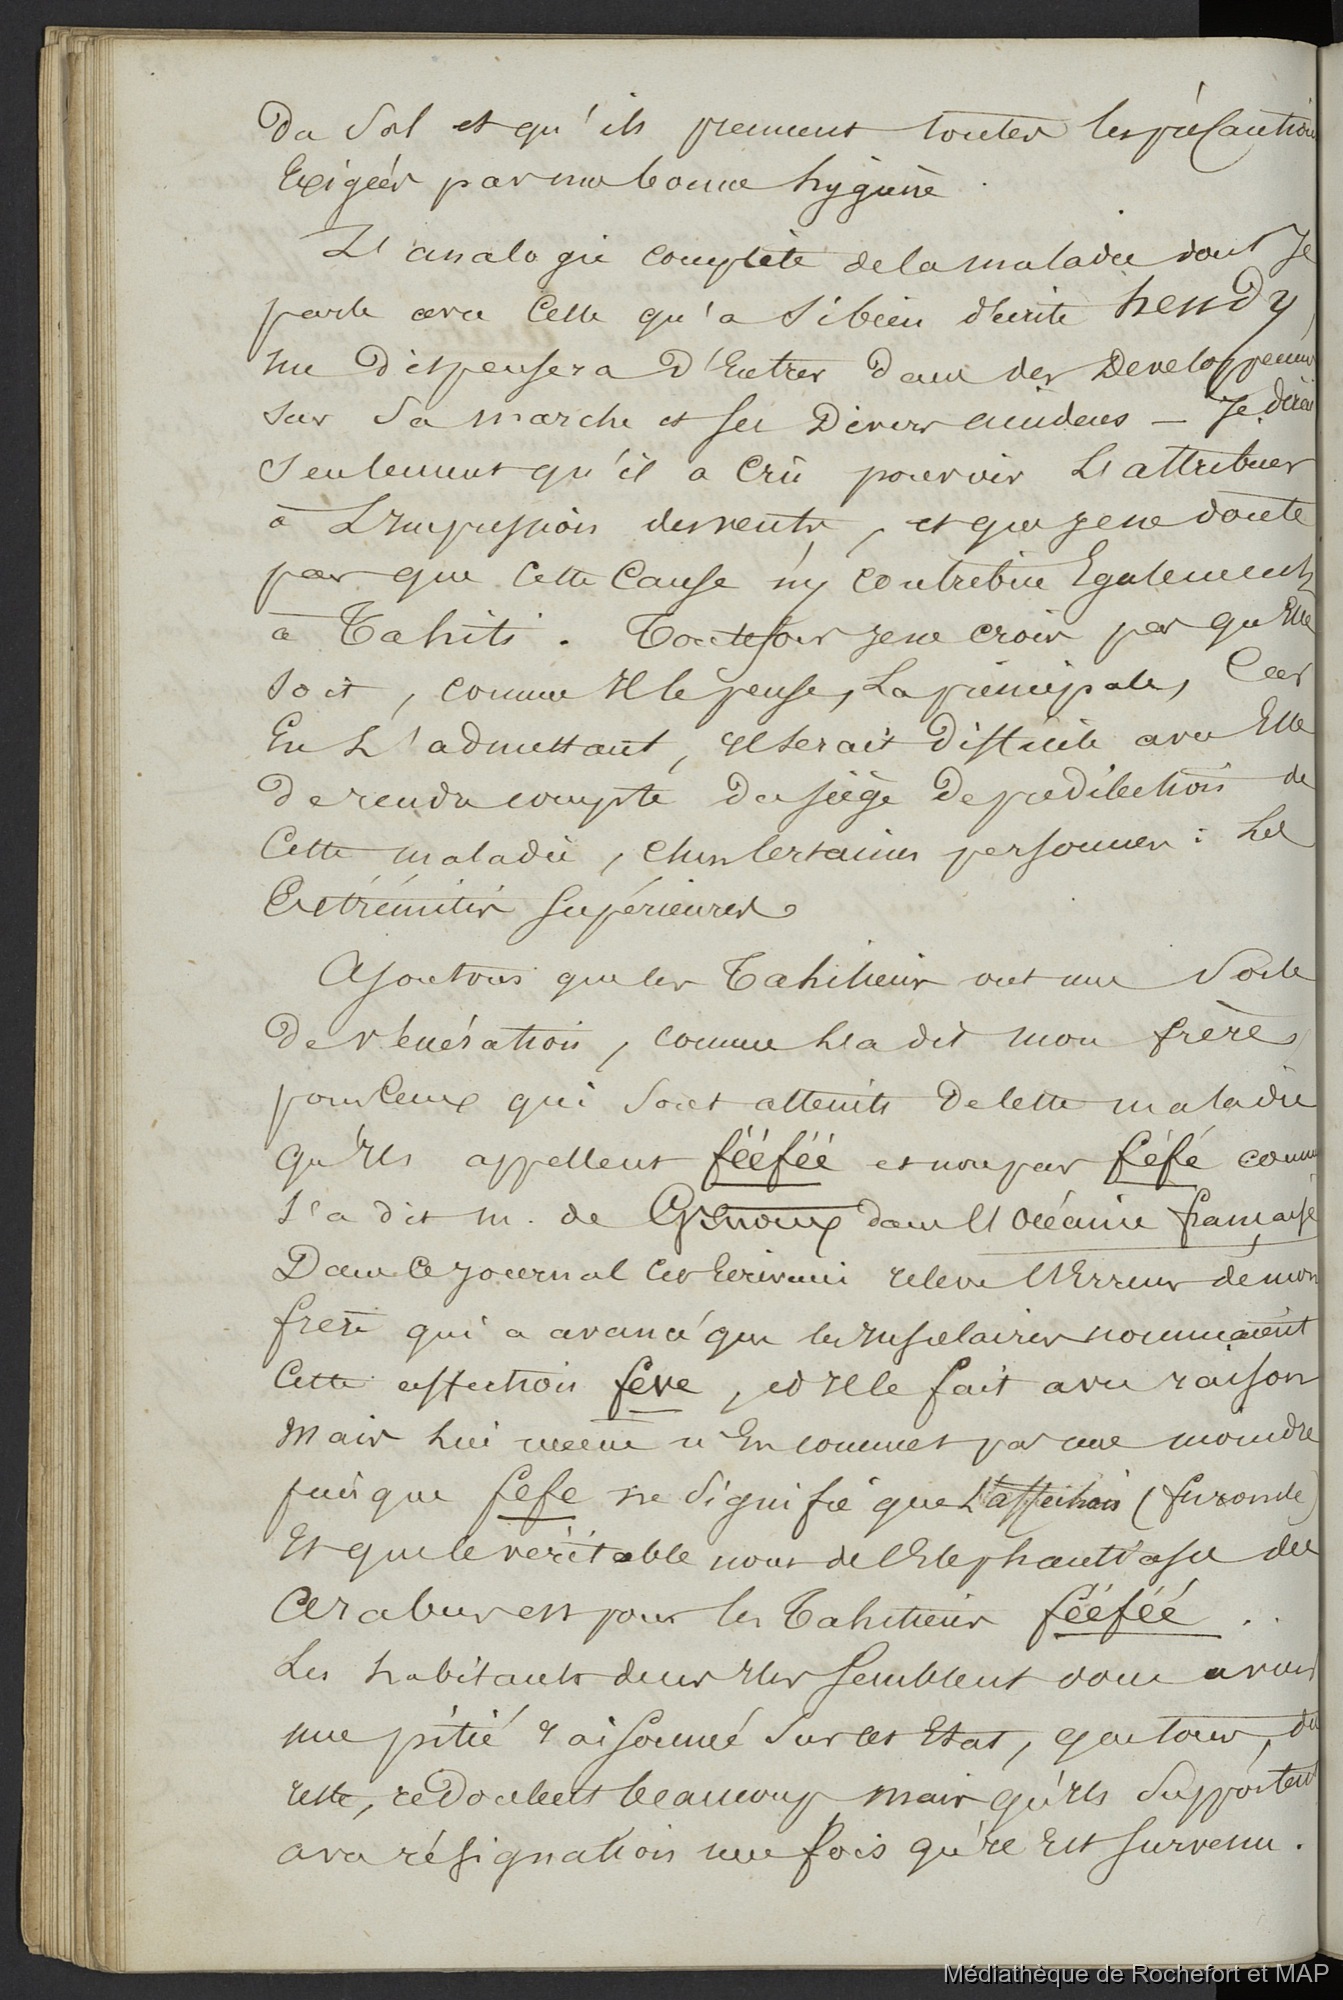 Du Sol et qu'ils prennent toutes les précautions
Exigées par une bonne hygiène.
L'analogie complète de la maladie dont Je
parle avec Celle qu'a Si bien décrite hendy,
me Dispensera D'Entrer Dans des Developpements
sur Sa marche et ses Divers accidens — Je dirai
Seulement qu'il a Crû pouvoir L'attribuer
à L'Impression des vents, et que je ne doute
pas que Cette Cause n'y Contribue Egalement
à Tahiti. Toutefois je ne crois pas qu'Elle
Soit, comme Il le pense, La principale, Car
En L'admettant, Il serait Difficile avec Elle
De rendre compte Du siège De prédilection de
Cette maladie, chez Certaines personnes : les
Extrémités Supérieures.
Ajoutons que les Tahitiens ont une Sorte
De vénération, comme L'a dit mon frère,
pour Ceux qui Sont atteints De Cette maladie
qu'Ils appellent fééféé et non pas féfé comme
l'a dit M. de Ginoux dans l'Océanie française
Dans Ce journal Cet Ecrivain relève l'Erreur de mon
frère qui a avancé que les Insulaires nommaient
Cette affection feve, et Il le fait avec raison
Mais lui même n'En commet pas une moindre
puisque fefe ne Signifie que L'affection (furoncle)
Et que le véritable nom de l'Elephantiasie des
Arabes est pour les Tahitiens fééféé.
Les habitants de ces Iles Semblent donc avoir
une pitié raisonnée Sur cet Etat, que tous, du
reste, redoutent beaucoup mais qu'Ils Supportent
avec résignation une fois qu'Il Est Survenu.
Médiathèque de Rochefort et MAP